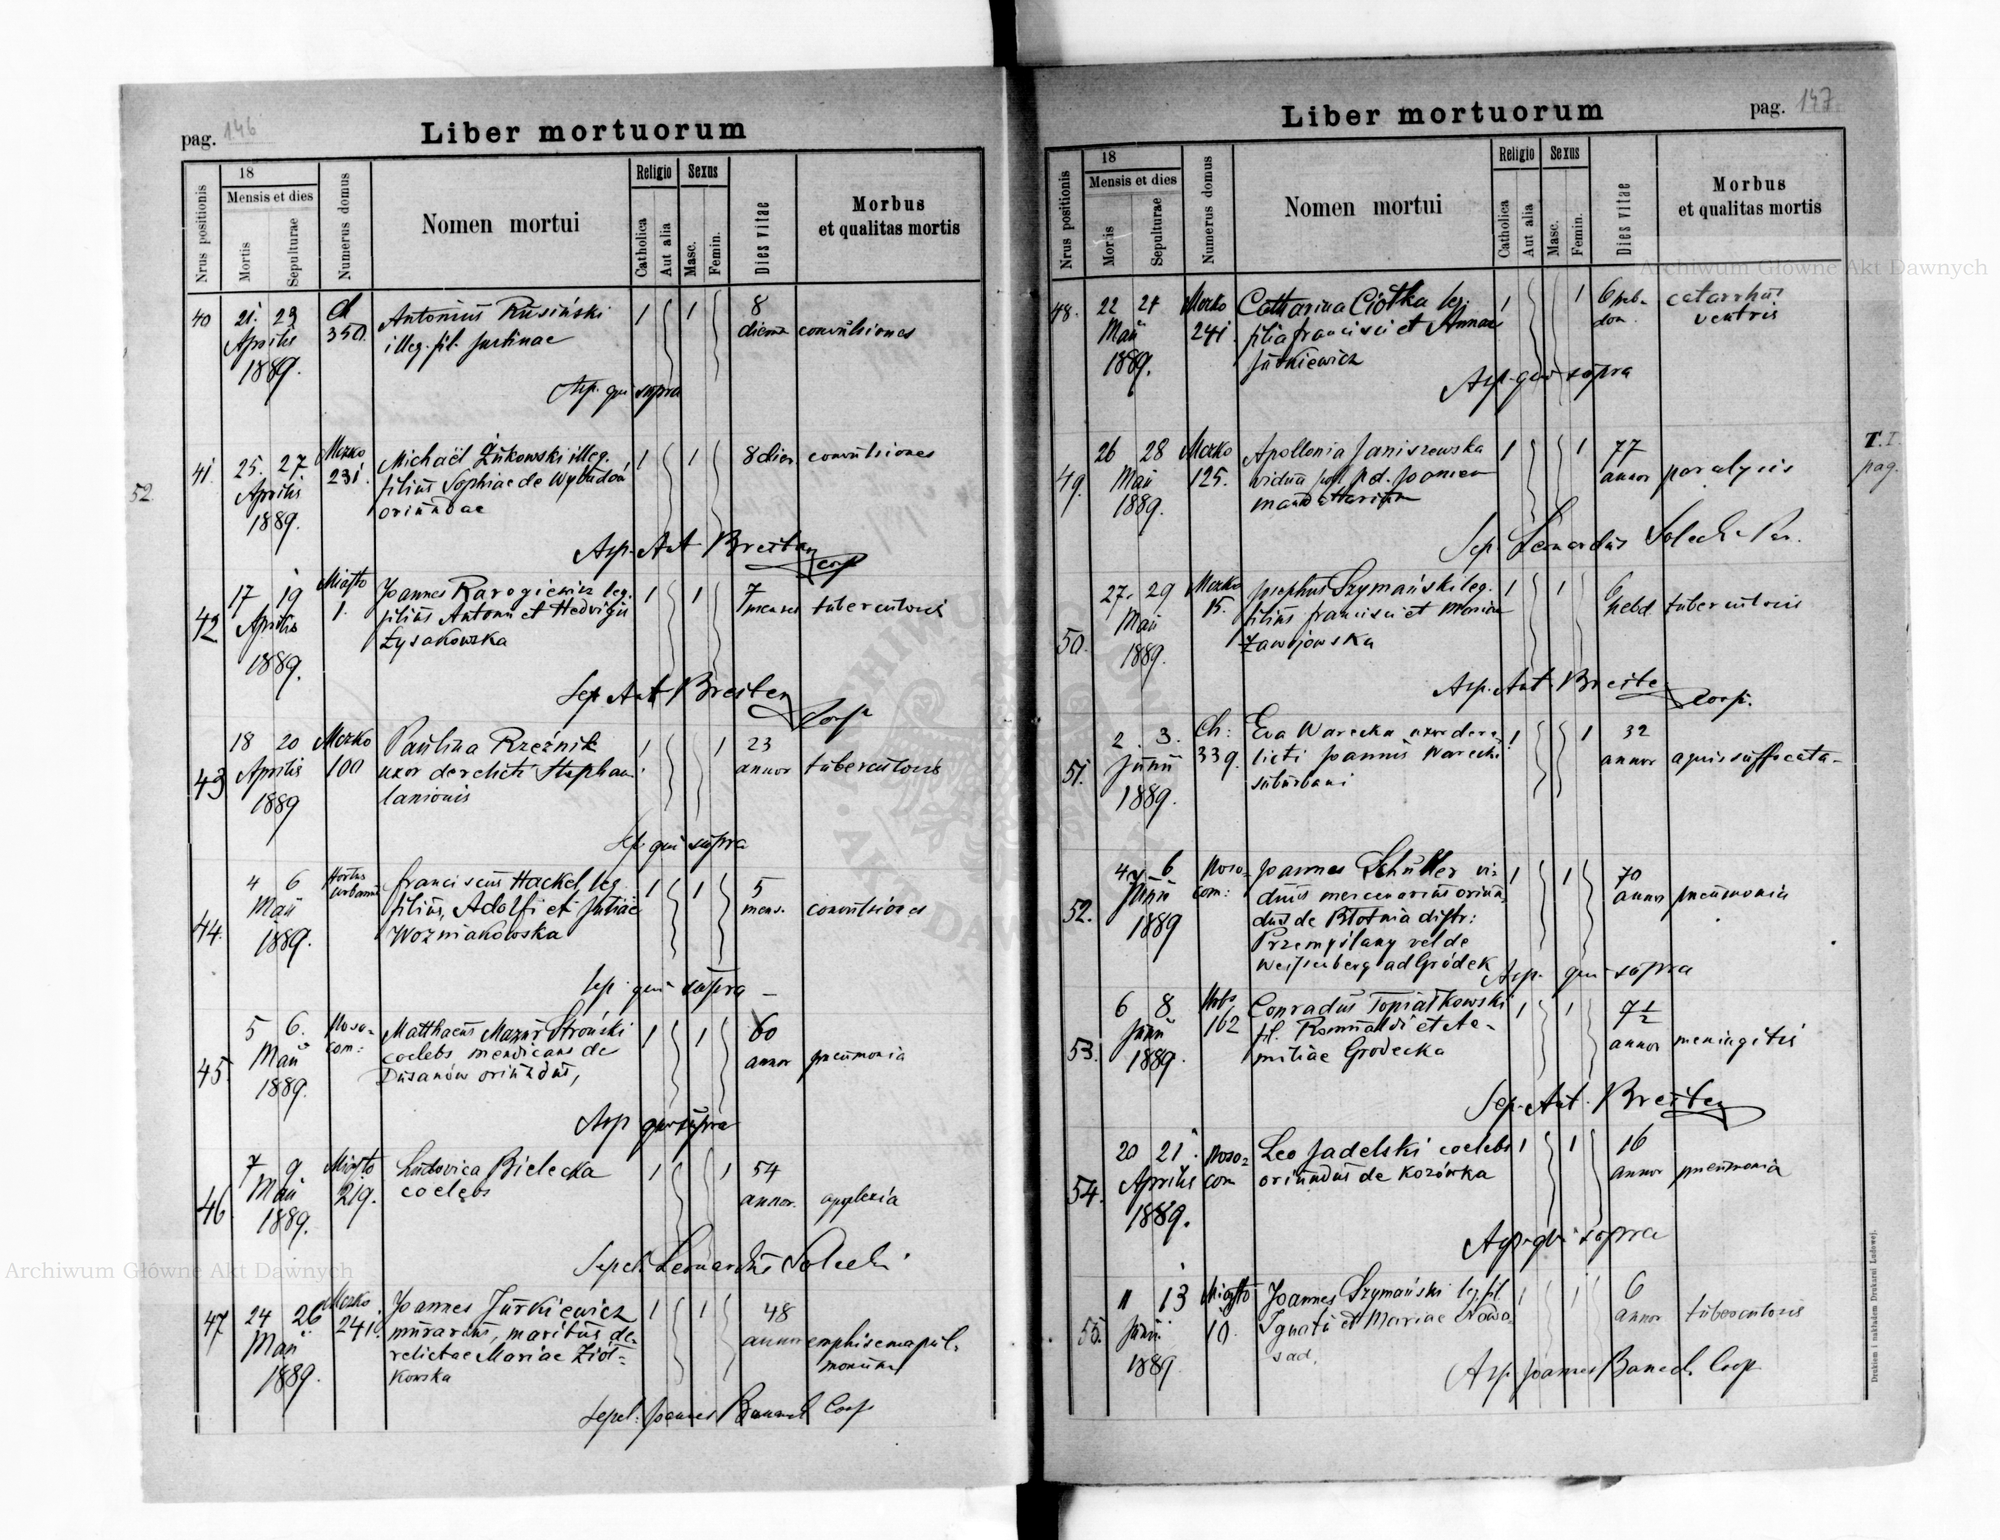 pag. 146
Liber mortuorum
Nrus positionis
18
Mensis et dies
Mortis
Sepulturae
Numerus domus
Nomen mortui
Religio
Catholica
Aut alia
Sexus
Masc.
Femin.
Dies vitae
Morbus
et qualitas mortis
40 21. 23 Ch Antonius Rusiński 1 1 8
Aprilis 350. illeg. fil. Justinae dierum convulsiones
1889.
Asp. qui supra
41 25. 27 Mczko Michaël Żukowski illeg. 1 1 8 dier. convulsiones
52
Aprilis 231. filius Sophiae de Wybudów
1889. oriundae
Asp. Ant Breiter Coop
42 17 19 Miasto Joannes Rarogiewicz leg. 1 1 7
Aprilis 1. filius Antonii et Hedvigis menses tuberculosis
1889. Łysakowska
Sep. Ant Breiter
Coop
43 18 20 Mczko Paulina Rzeźnik 1 1 23
Aprilis 100 uxor derelicti Stephani annor tuberculosis
1889 lanionis
Sep. qui supra
44. 4 6 Hortus urbanus Franciscus Hackel leg. 1 1 5
Maii filius, Adolfi et Juliae mens. convulsiones
1889. Wozniakowska
Sep. qui supra
45. 5 6. Noso- Matthaeus Mazur Stroński 1 1 60
Maii com: coelebs mendicans de annor pneumonia
1889. Dusanów oriundus,
Asp qui supra
46 7 9 Miasto Ludovica Bielecka 1 1 54
Maii 219. coelebs annor. apoplexia
1889.
Sepel. Leonardus Solecki
47 24 26 Mczko Joannes Jurkiewicz 1 1 48
Maii 241. murarius, maritus de- annor emphisema pul-
1889. relictae Mariae Ziół- monum
kowska
Sepel: Joannes Banach Coop
Liber mortuorum
pag. 147
Nrus positionis
18
Mensis et dies
Mortis
Sepulturae
Numerus domus
Nomen mortui
Religio
Catholica
Aut alia
Sexus
Masc.
Femin.
Dies vitae
Morbus
et qualitas mortis
48. 22 24 Mczko Catharina Ciołka leg. 1 1 6 heb- catarrhus
Maii 241. filia Francisci et Annae dom. ventris
1889. Jurkiewicz
Asp. qui supra
49. 26 28 Mczko Apollonia Janiszewska 1 1 77
Maii 125. vidua post pd. Joannem annor paralysis
1889.
T. I.
pag.
Sep. Leonardus Solecki Par.
50. 27. 29 Mczko Josephus Szymański leg. 1 1 6
Maii 15. filius Francisci et Maria hebd tuberculosis
1889. Zawojowska
Asp. Ant Breiter
Coop.
51. 2. 3. Ch: Eva Warecka uxor dere- 1 1 32
Junii 339. licti Joannis Warecki annor aquis suffocata
1889. suburbani
52. 4 6 Noso- Joannes Schüller vi- 1 1 70
Junii com: duus mercenarius oriun- annor pneumonia
1889 dus de Błotnia distr:
Przemyślany vel de
Weissenberg ad Gródek
Asp. qui supra
53. 6 8. 162 Conradus Topiałkowski 1 1 7½
Junii fil. Romualdi et Ae- annor meningitis
1889. miliae Grodecka
Sep. Ant. Breiter
54. 20 21. Noso- Leo Jadelski coelebs 1 1 16
Aprilis com oriundus de Kozówka annor pneumonia
1889.
Asp. qui supra
55. 11 13 Miasto Joannes Szymański leg fil 1 1 6
Junii 10. Ignatii et Mariae Nowo- annor tuberculosis
1889 sad.
Asp. Joannes Banach Coop
Drukiem i nakładem Drukarni Ludowej.
Archiwum Główne Akt Dawnych
Archiwum Główne Akt Dawnych